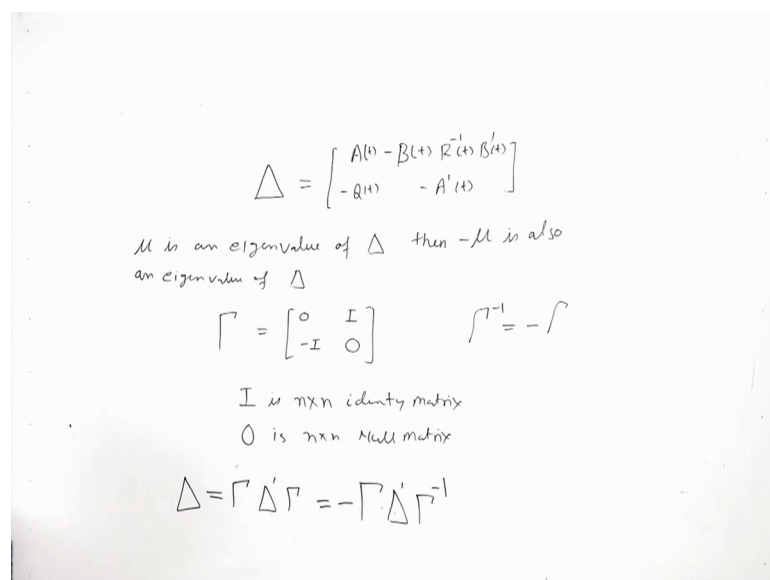 Δ = [ A(t) - B(t) R⁻¹(t) B'(t)
- Q(t) - A'(t) ]
μ is an eigenvalue of Δ then -μ is also
an eigenvalue of Δ
Γ = [ 0 I
-I 0 ] Γ⁻¹ = - Γ
I is nxn identy matrix
0 is nxn Null matrix
Δ = Γ Δ' Γ = - Γ Δ' Γ⁻¹